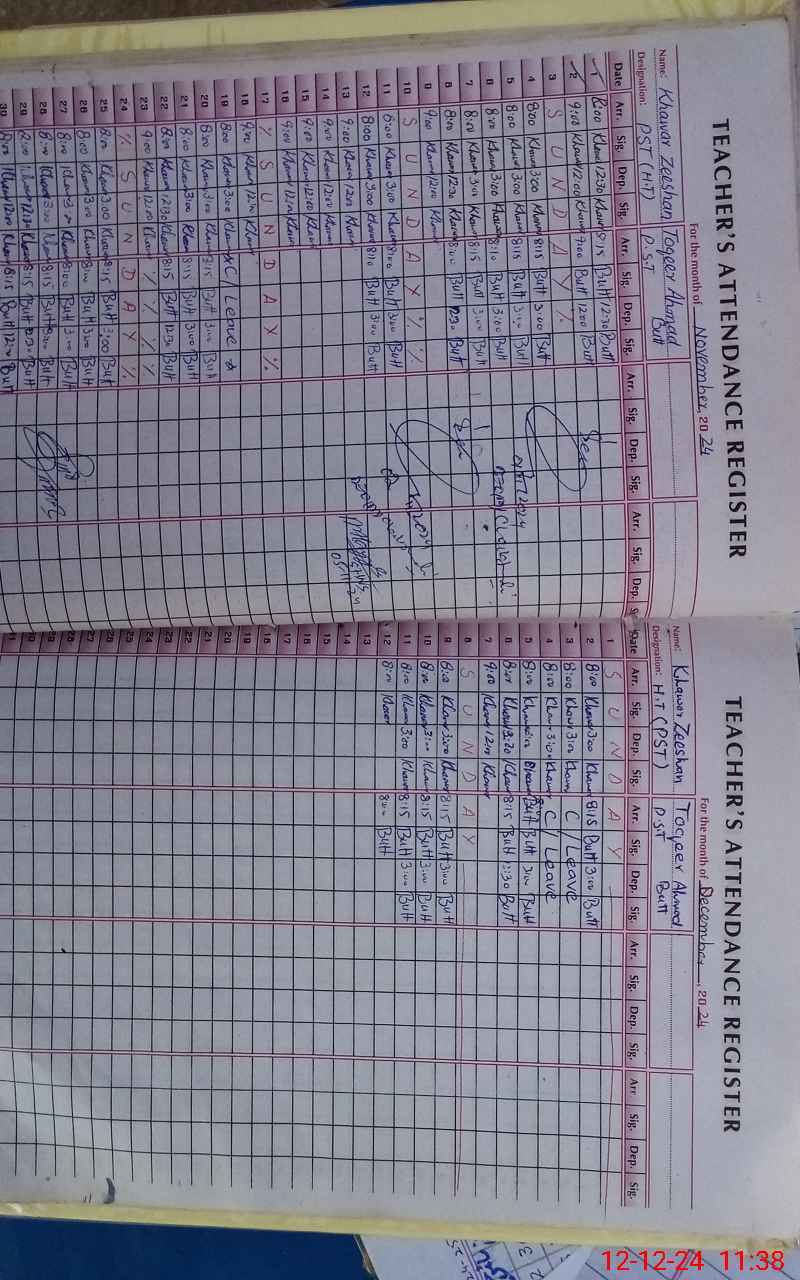 TEACHER'S ATTENDANCE REGISTER
For the month of November, 2024
Name: Khawar Zeeshan Toqeer Ahmad Butt
Designation: PST (H.T) P.S.T
Date Arr. Sig. Dep. Sig. Arr. Sig. Dep. Sig. Arr. Sig. Dep. Sig. Arr. Sig. Dep.
1 8:00 Khawar 12:30 Khawar 8:15 Butt 12:30 Butt
2 9:00 Khawar 12:00 Khawar 9:00 Butt 12:00 Butt
3 S U N D A Y
4 8:00 Khawar 3:00 Khawar 8:15 Butt 3:00 Butt
5 8:00 Khawar 3:00 Khawar 8:15 Butt 3:00 Butt
6 8:00 Khawar 3:00 Khawar 8:10 Butt 3:00 Butt
7 8:00 Khawar 3:00 Khawar 8:15 Butt 3:00 Butt
8 8:00 Khawar 12:30 Khawar 8:00 Butt 12:30 Butt
9 9:00 Khawar 12:00 Khawar
10 S U N D A Y
11 8:00 Khawar 3:00 Khawar 8:00 Butt 3:00 Butt
12 8:00 Khawar 3:00 Khawar 8:10 Butt 3:00 Butt
13 9:00 Khawar 12:00 Khawar
14 9:00 Khawar 12:00 Khawar
15 9:00 Khawar 12:00 Khawar
16 9:00 Khawar 12:00 Khawar
17 S U N D A Y
18 9:00 Khawar 12:00 Khawar
19 8:00 Khawar 3:00 Khawar C/Leave
20 8:00 Khawar 3:00 Khawar 8:15 Butt 3:00 Butt
21 8:00 Khawar 3:00 Khawar 8:15 Butt 3:00 Butt
22 8:00 Khawar 12:30 Khawar 8:15 Butt 12:30 Butt
23 9:00 Khawar 12:00 Khawar
24 S U N D A Y
25 8:00 Khawar 3:00 Khawar 8:15 Butt 3:00 Butt
26 8:00 Khawar 3:00 Khawar 8:00 Butt 3:00 Butt
27 8:00 Khawar 3:00 Khawar 8:00 Butt 3:00 Butt
28 8:00 Khawar 3:00 Khawar 8:15 Butt 3:00 Butt
29 8:00 Khawar 12:30 Khawar 8:15 Butt 12:30 Butt
30 Khawar 12:00 Khawar 8:15 Butt 12:00 Butt
TEACHER'S ATTENDANCE REGISTER
For the month of December, 2024
Name: Khawar Zeeshan Toqeer Ahmad Butt
Designation: H.T (PST) P.S.T
Date Arr. Sig. Dep. Sig. Arr. Sig. Dep. Sig. Arr. Sig. Dep. Sig. Arr Sig. Dep. Sig.
1 S U N D A Y
2 8:00 Khawar 3:00 Khawar 8:15 Butt 3:00 Butt
3 8:00 Khawar 3:00 Khawar C/Leave
4 8:00 Khawar 3:00 Khawar C/Leave
5 8:00 Khawar Khawar Butt 3:00 Butt
6 8:00 Khawar 12:30 Khawar 8:15 Butt 12:30 Butt
7 9:00 Khawar 12:00 Khawar
8 S U N D A Y
9 8:00 Khawar 3:00 Khawar 8:15 Butt 3:00 Butt
10 8:00 Khawar 3:00 Khawar 8:15 Butt 3:00 Butt
11 8:00 Khawar 3:00 Khawar 8:15 Butt 3:00 Butt
12 8:00 Khawar 8:00 Butt
13
14
15
16
17
18
19
20
21
22
23
24
25
26
27
28
29
30
31
12-12-24 11:38